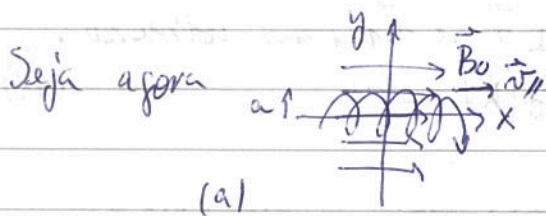 y
Seja agora
B⃗₀ v⃗∥
a
x
(a)